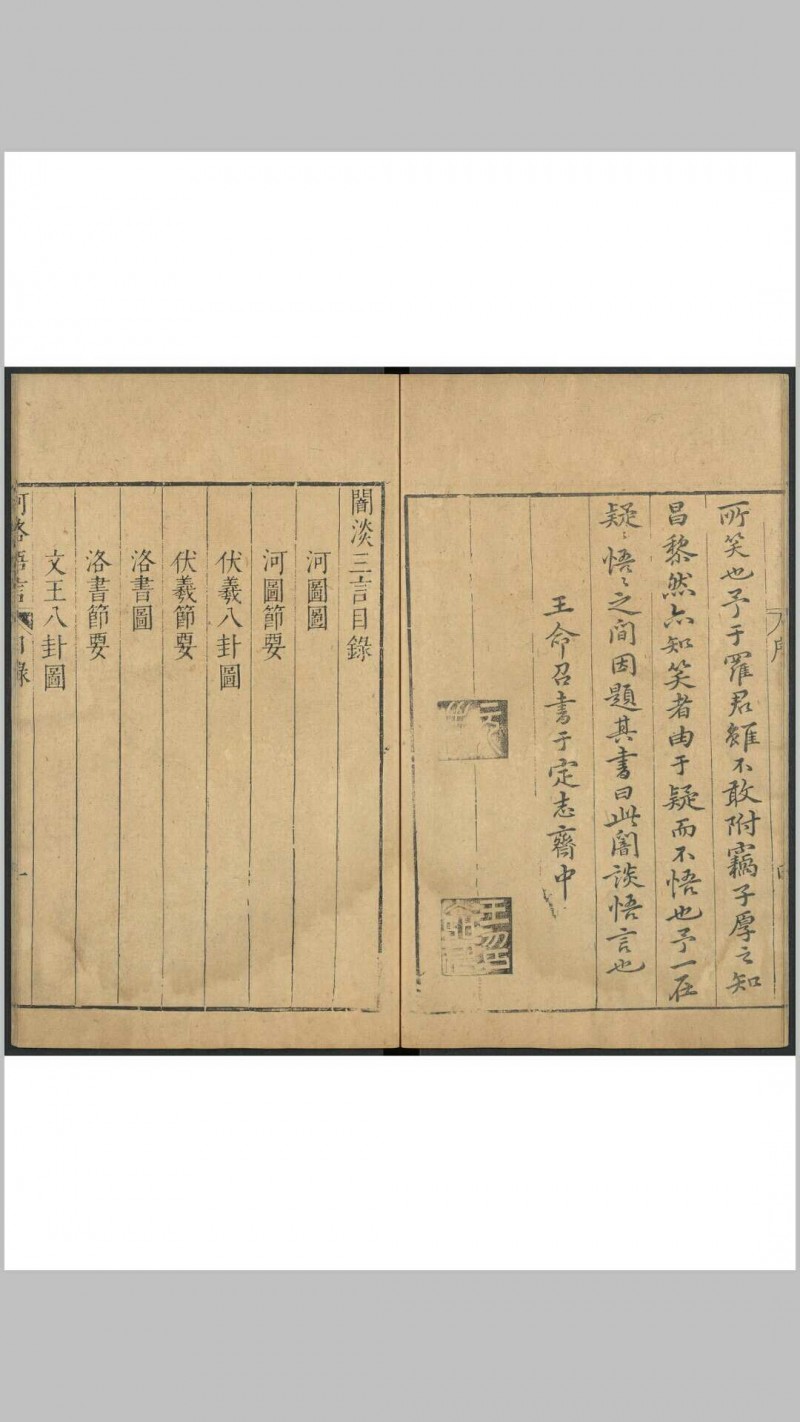 所笑也予于羅君雖不敢附竊子厚之知
昌黎然亦知笑者由于疑而不悟也予一在
疑〻悟〻之間因題其書曰此闇談悟言也
王命召書于定志齋中
闇淡三言目錄
河圖圖
河圖節要
伏羲八卦圖
伏羲節要
洛書圖
洛書節要
文王八卦圖
河洛語言 目錄 一